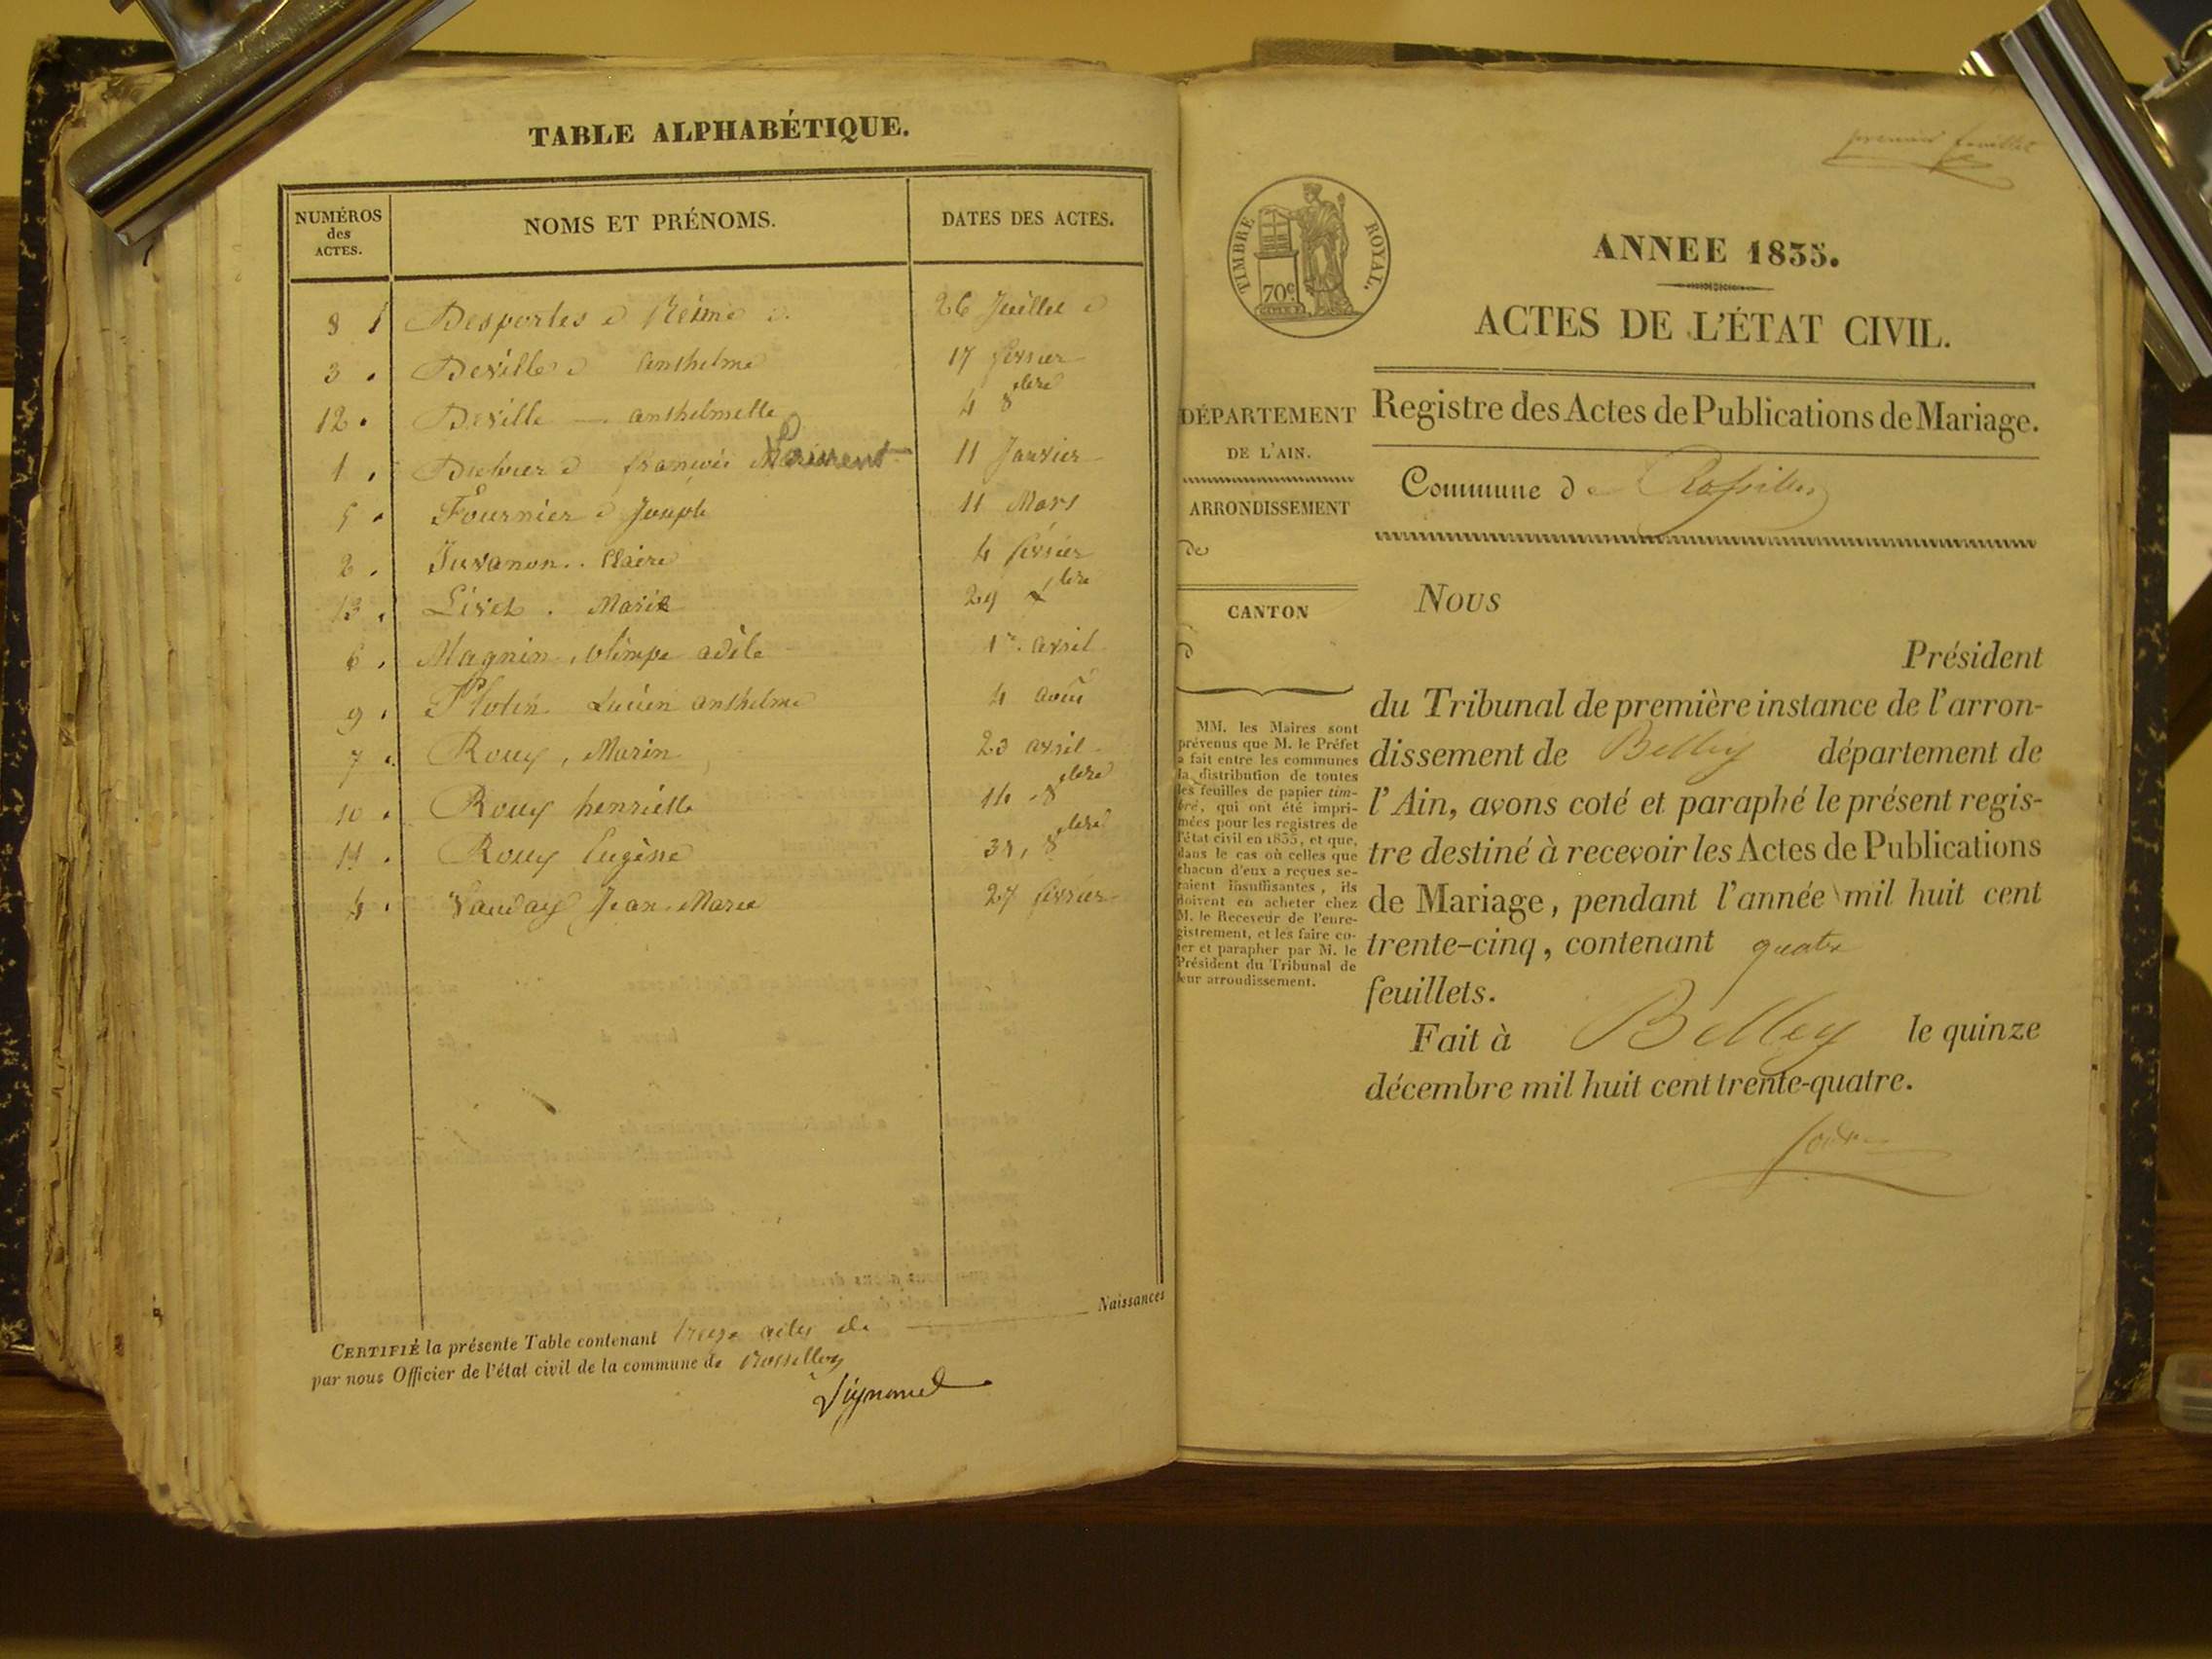 TABLE ALPHABÉTIQUE.
NUMÉROS des ACTES. NOMS ET PRÉNOMS. DATES DES ACTES.
8 Desportes Reine 26 Juillet
3 Deville Anthelme 17 février
12 Deville anthelmette 4 8bre
1 françois Laurent 11 Janvier
5 Fournier Joseph 11 Mars
2 Juvanon Claire 4 février
13 Livet Marie 29 bre
6 Magnin, olimpe adèle 1r avril
9 Plotin Lucien anthelme 4 août
7 Rouy, Marin 23 avril
10 Rouy henriette 14 8bre
11 Rouy Eugène 31, 8bre
4 Vauday Jean Marie 27 février
CERTIFIÉ la présente Table contenant treize actes de Naissances
par nous Officier de l'état civil de la commune de Rossillon
premier feuillet
TIMBRE ROYAL.
70c
ANNEE 1835.
ACTES DE L'ÉTAT CIVIL.
DÉPARTEMENT
DE L'AIN.
ARRONDISSEMENT
de
CANTON
d
MM. les Maires sont
prévenus que M. le Préfet
a fait entre les communes
la distribution de toutes
les feuilles de papier tim-
bré, qui ont été impri-
mées pour les registres de
l'état civil en 1835, et que,
dans le cas où celles que
chacun d'eux a reçues se-
raient insuffisantes, ils
doivent en acheter chez
M. le Receveur de l'enre-
gistrement, et les faire co-
ter et parapher par M. le
Président du Tribunal de
leur arrondissement.
Registre des Actes de Publications de Mariage.
Commune de Rossillon
Nous
Président
du Tribunal de première instance de l'arron-
dissement de Belley département de
l'Ain, avons coté et paraphé le présent regis-
tre destiné à recevoir les Actes de Publications
de Mariage, pendant l'année mil huit cent
trente-cinq, contenant quatre
feuillets.
Fait à Belley le quinze
décembre mil huit cent trente-quatre.